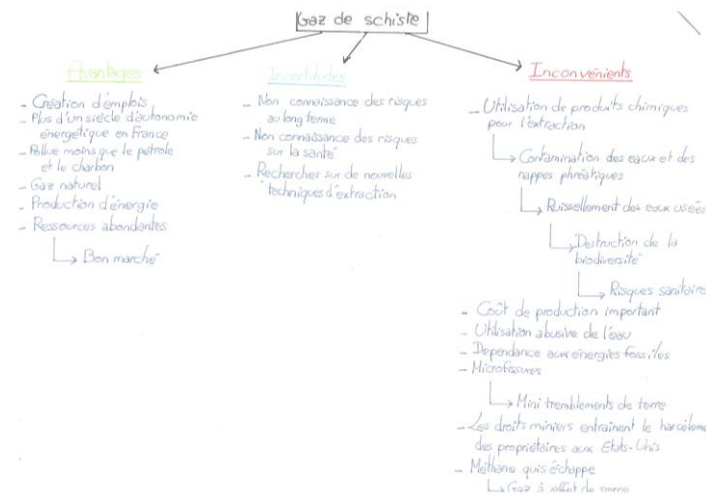 Gaz de schiste
Avantages
- Création d'emplois
- Plus d'un siècle d'autonomie
énergétique en France
- Pollue moins que le pétrole
et le charbon
- Gaz naturel
- Production d'énergie
- Ressources abondantes
Bon marché
Incertitudes
- Non connaissance des risques
au long terme
- Non connaissance des risques
sur la santé
- Recherches sur de nouvelles
techniques d'extraction
Inconvénients
- Utilisation de produits chimiques
pour l'extraction
Contamination des eaux et des
nappes phréatiques
Ruissellement des eaux usées
Destruction de la
biodiversité
Risques sanitaire
- Coût de production important
- Utilisation abusive de l'eau
- Dépendance aux énergies fossiles
- Microfissures
Mini tremblements de terre
- Les droits miniers entraînent le harcèleme
des propriétaires aux Etats-Unis
- Méthane qui s'échappe
Gaz à effet de serre